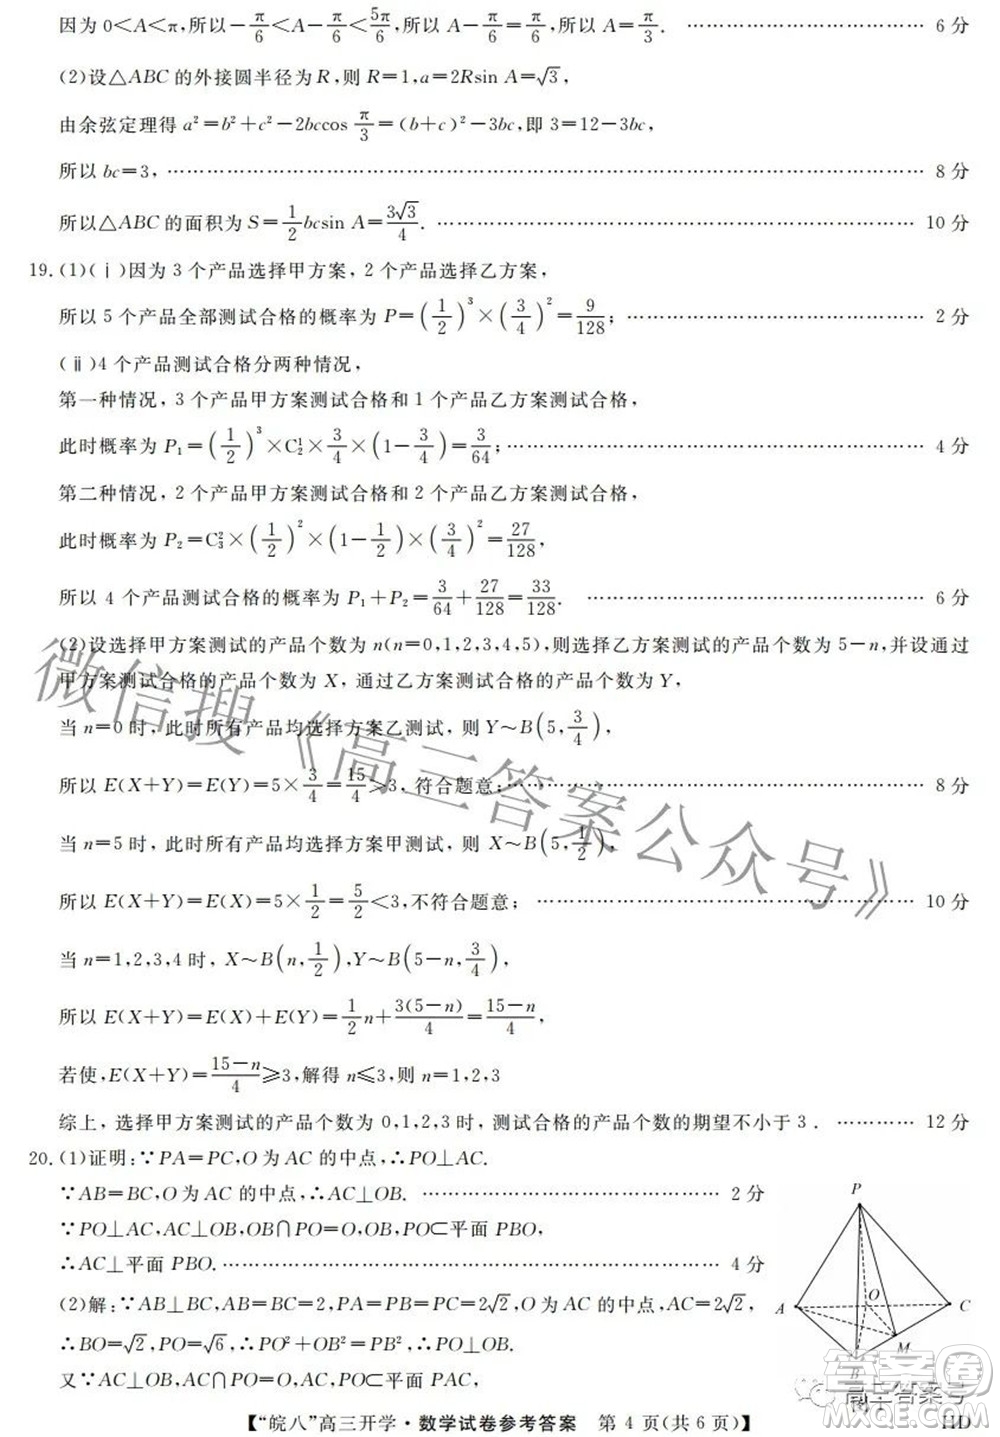 因为 0<A<π,所以-π/6<A-π/6<5π/6,所以 A-π/6=π/6,所以 A=π/3. …… 6 分
(2)设△ABC 的外接圆半径为 R,则 R=1,a=2Rsin A=√3,
由余弦定理得 a²=b²+c²-2bccos π/3=(b+c)²-3bc,即 3=12-3bc,
所以 bc=3, …… 8 分
所以△ABC 的面积为 S=1/2 bcsin A=3√3/4. …… 10 分
19.(1)(ⅰ)因为 3 个产品选择甲方案,2 个产品选择乙方案,
所以 5 个产品全部测试合格的概率为 P=(1/2)³×(3/4)²=9/128; …… 2 分
(ⅱ)4 个产品测试合格分两种情况,
第一种情况,3 个产品甲方案测试合格和 1 个产品乙方案测试合格,
此时概率为 P₁=(1/2)³×C₂¹×3/4×(1-3/4)=3/64; …… 4 分
第二种情况,2 个产品甲方案测试合格和 2 个产品乙方案测试合格,
此时概率为 P₂=C₃²×(1/2)²×(1-1/2)×(3/4)²=27/128,
所以 4 个产品测试合格的概率为 P₁+P₂=3/64+27/128=33/128. …… 6 分
(2)设选择甲方案测试的产品个数为 n(n=0,1,2,3,4,5),则选择乙方案测试的产品个数为 5-n,并设通过
甲方案测试合格的产品个数为 X,通过乙方案测试合格的产品个数为 Y,
当 n=0 时,此时所有产品均选择方案乙测试,则 Y~B(5,3/4),
所以 E(X+Y)=E(Y)=5×3/4=15/4>3,符合题意; …… 8 分
当 n=5 时,此时所有产品均选择方案甲测试,则 X~B(5,1/2),
所以 E(X+Y)=E(X)=5×1/2=5/2<3,不符合题意; …… 10 分
当 n=1,2,3,4 时,X~B(n,1/2),Y~B(5-n,3/4),
所以 E(X+Y)=E(X)+E(Y)=1/2 n+3(5-n)/4=15-n/4,
若使,E(X+Y)=15-n/4≥3,解得 n≤3,则 n=1,2,3
综上,选择甲方案测试的产品个数为 0,1,2,3 时,测试合格的产品个数的期望不小于 3. …… 12 分
20.(1)证明:∵PA=PC,O 为 AC 的中点,∴PO⊥AC.
∵AB=BC,O 为 AC 的中点,∴AC⊥OB. …… 2 分
∵PO⊥AC,AC⊥OB,OB∩PO=O,OB,PO⊂平面 PBO,
∴AC⊥平面 PBO. …… 4 分
(2)解:∵AB⊥BC,AB=BC=2,PA=PB=PC=2√2,O 为 AC 的中点,AC=2√2,
∴BO=√2,PO=√6,∴PO²+OB²=PB²,∴PO⊥OB.
又∵AC,AC∩PO=O,AC,PO⊂平面 PAC,
P
A
O
C
M
B
微信搜《高三答案公众号》
答案圈
高三答案号
【“皖八”高三开学·数学试卷参考答案 第 4 页(共 6 页)】
HD